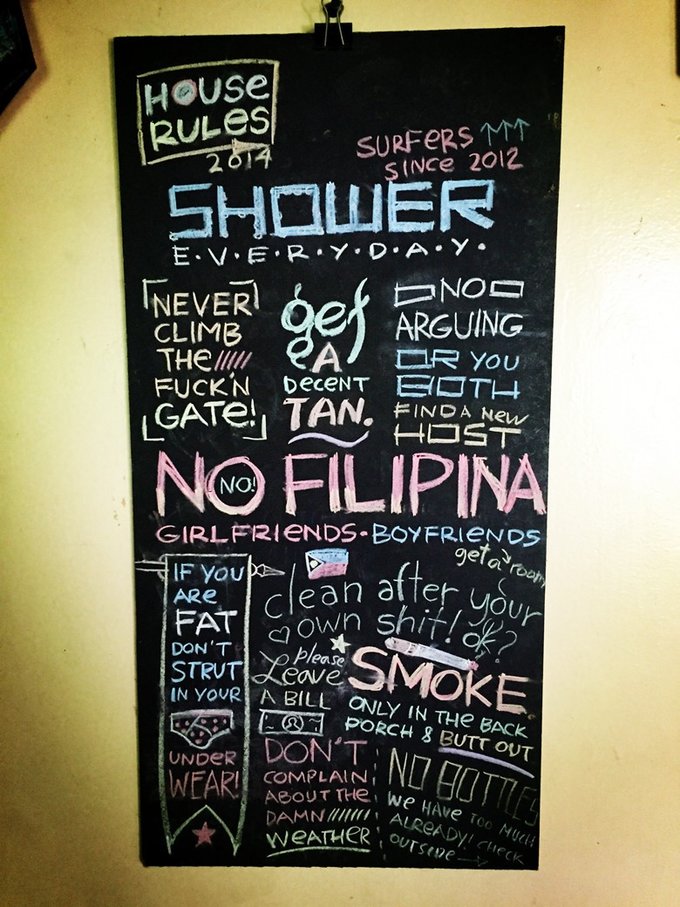 HOUSE
RULES
2014
SURFERS
SINCE 2012
SHOWER
E·V·E·R·Y·D·A·Y·
NEVER
CLIMB
THE
FUCK'N
GATE!
get
A
DECENT
TAN.
NO
ARGUING
OR YOU
BOTH
FIND A NEW
HOST
NO FILIPINA
NO!
GIRLFRIENDS·BOYFRIENDS
get a room
IF YOU
ARE
FAT
DON'T
STRUT
IN YOUR
UNDER
WEAR!
clean after your
own shit! ok?
please
Leave
A BILL
SMOKE
ONLY IN THE BACK
PORCH & BUTT OUT
DON'T
COMPLAIN
ABOUT THE
DAMN
WEATHER
NO BOTTLES
WE HAVE TOO MUCH
ALREADY! CHECK
OUTSIDE